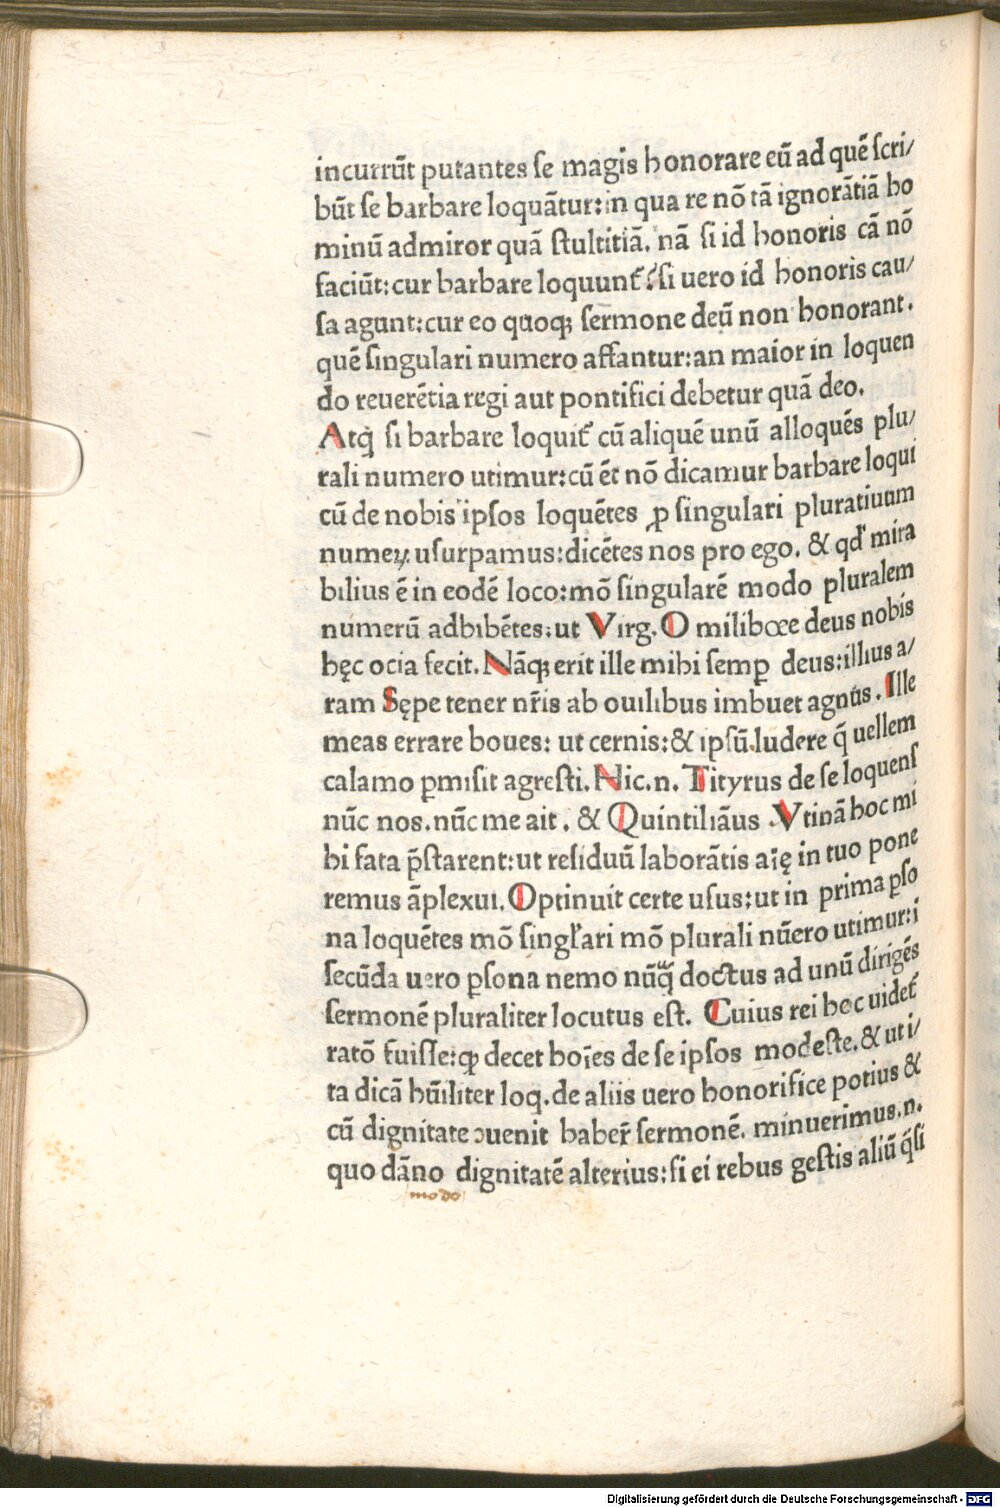 incurrūt putantes se magis honorare eū ad quē scri/
būt se barbare loquātur: in qua re nō tā ignorātiā ho
minū admiror quā stultitiā. nā si id honoris cā nō
faciūt: cur barbare loquunt᷑? si uero id honoris cau/
sa agunt: cur eo quoqꝫ sermone deū non honorant.
quē singulari numero affantur: an maior in loquen
do reuerētia regi aut pontifici debetur quā deo.
Atq̄ si barbare loquit᷑ cū aliquē unū alloquēs plu/
rali numero utimur: cū ēt nō dicamur barbare loqui
cū de nobis ipsos loquētes ꝓ singulari pluratiuum
numeꝝ usurpamus: dicētes nos pro ego. & qd̕ mira
bilius ē in eodē loco: mō singularē modo pluralem
numerū adhibētes: ut Virg. O melibœe deus nobis
hęc ocia fecit. Nāqꝫ erit ille mihi semꝑ deus: illius a/
ram Sępe tener nr̄is ab ouilibus imbuet agnus. Ille
meas errare boues: ut cernis: & ipsū ludere q̄ uellem
calamo ꝑmisit agresti. Hic .n. Tityrus de se loquens
nūc nos. nūc me ait. & Quintiliāus. Vtinā hoc mi
hi fata p̄starent: ut residuū laborātis aīę in tuo pone
remus āplexui. Optinuit certe usus: ut in prima ꝑso
na loquētes mō singl̕ari mō plurali nūero utimur: ī
secūda uero ꝑsona nemo nūq̄ doctus ad unū dirigēs
sermonē pluraliter locutus est. Cuius rei hec uidet᷑
ratō fuisse: ꝙ decet hoīes de se ipsos modeste. & ut i/
ta dicā hūiliter loq. de aliis uero honorifice potius &
cū dignitate ↄuenit haber̄ sermonē. minuerimus .n.
quo dāno dignitatē alterius: si ei rebus gestis aliū q̄si
modo
Digitalisierung gefördert durch die Deutsche Forschungsgemeinschaft - DFG